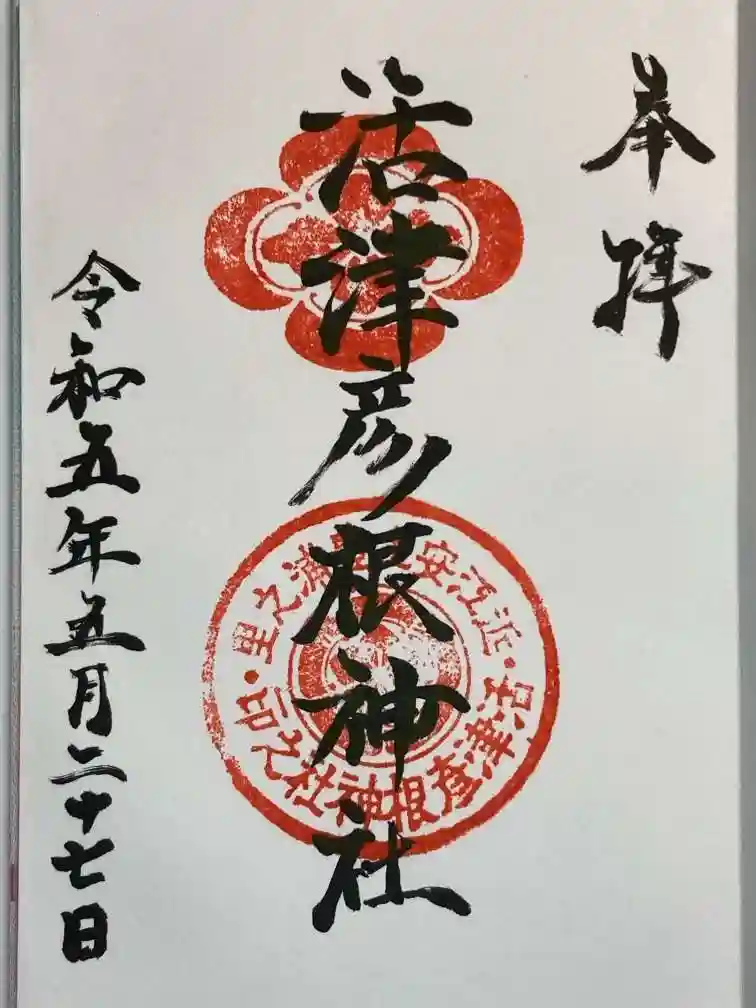 奉拝
活津彦根神社
近江安土豊浦之里
活津彦根神社之印
令和五年五月二十七日